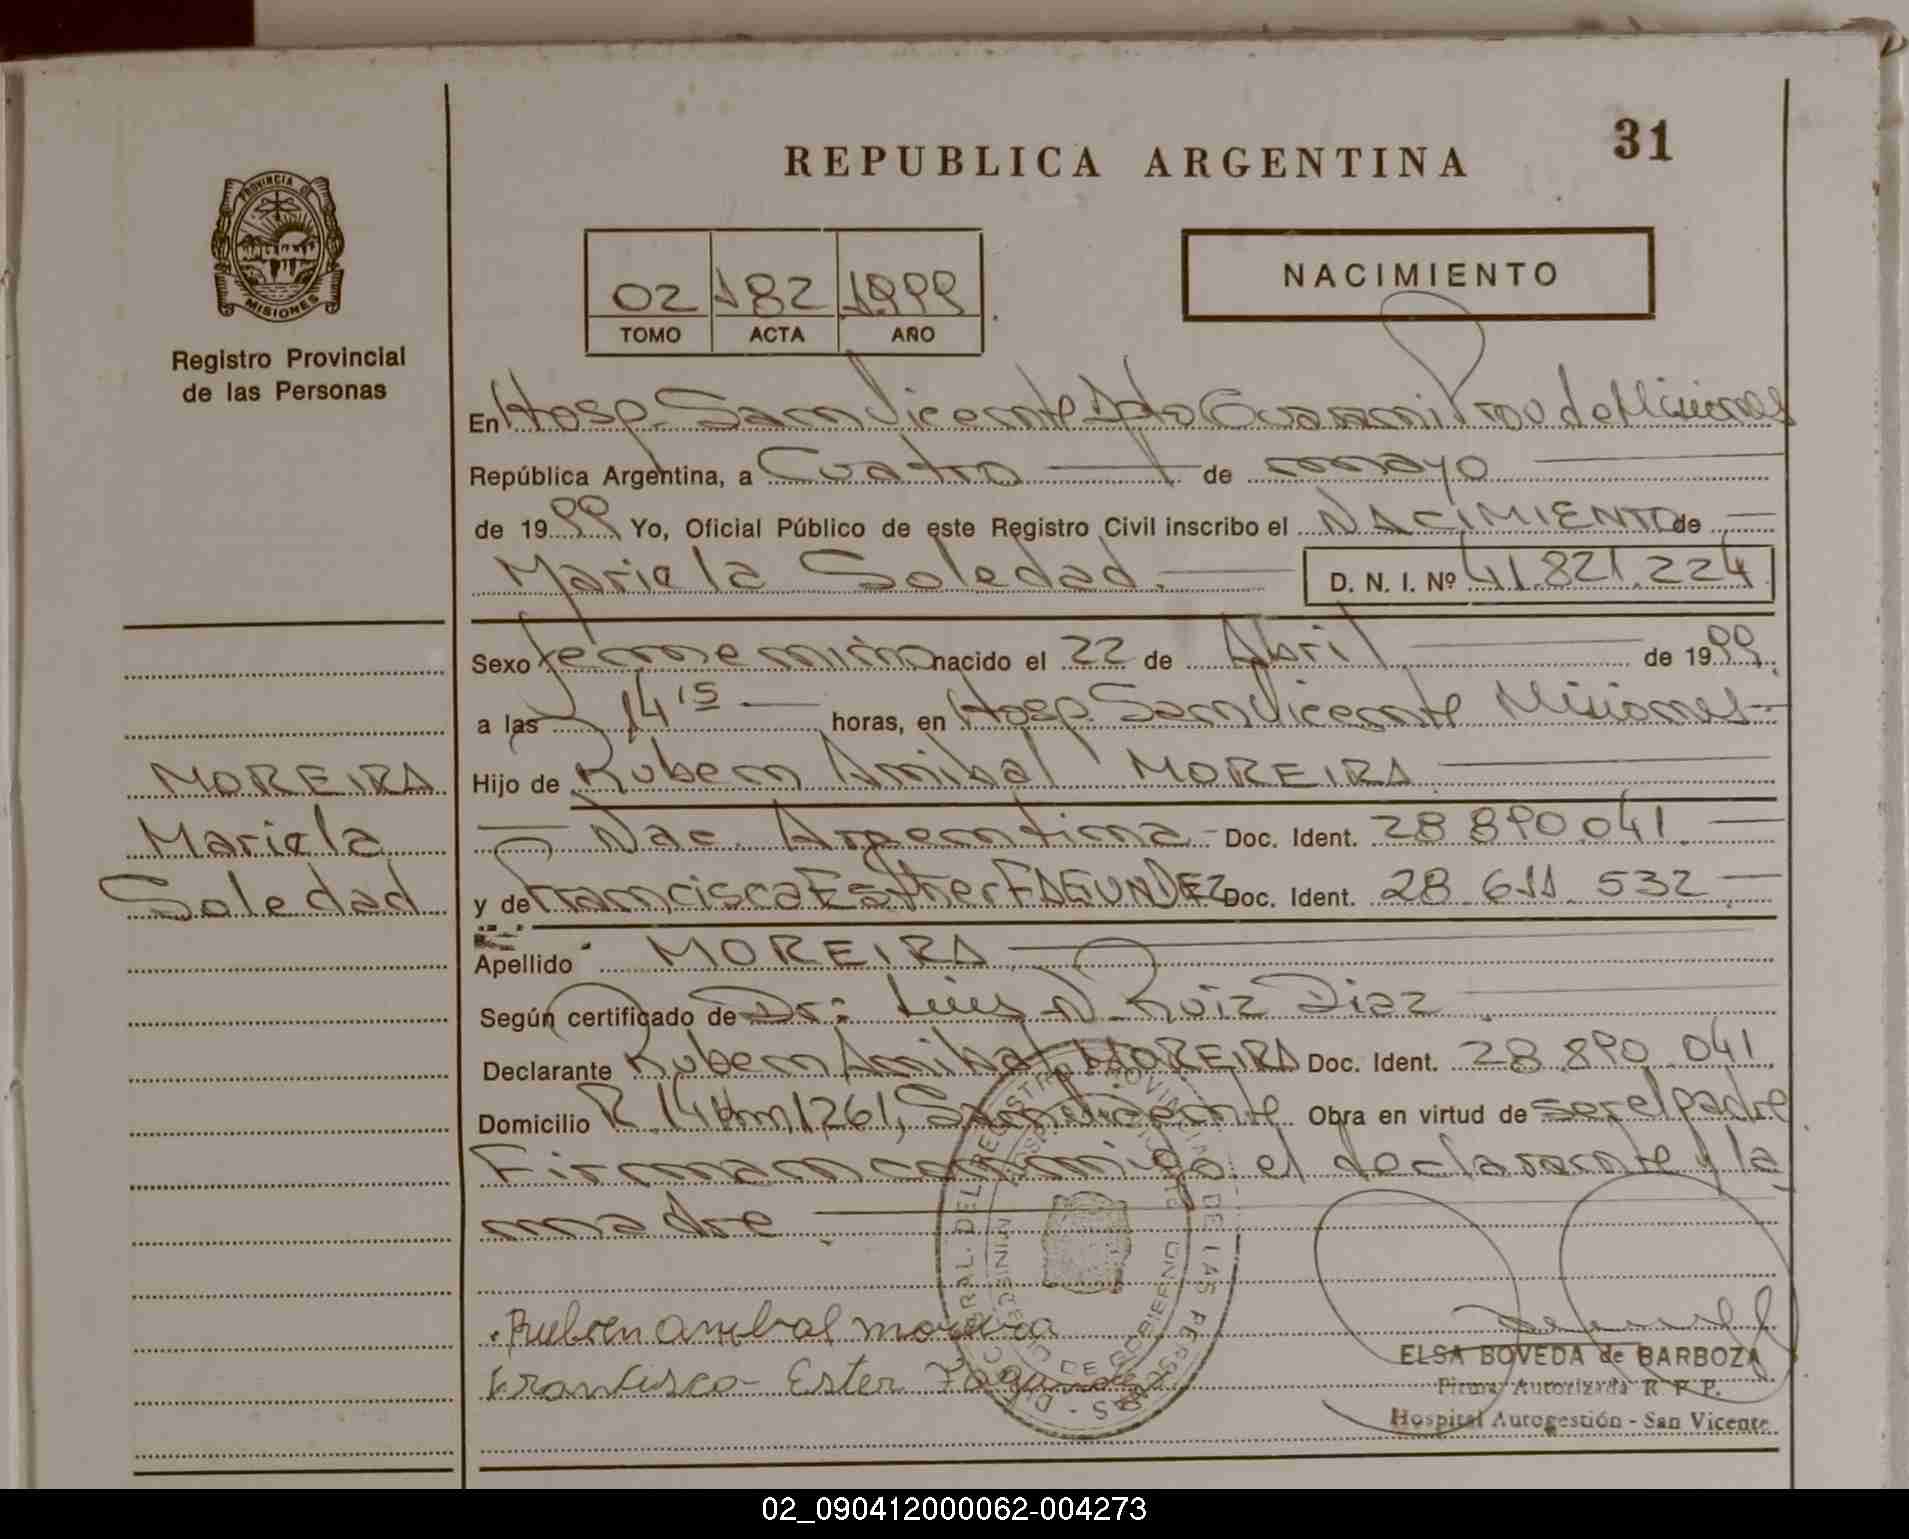 31
REPUBLICA ARGENTINA
PROVINCIA DE
MISIONES
Registro Provincial
de las Personas
02 182 1999
TOMO ACTA AÑO
NACIMIENTO
En Hosp. San Vicente Dpto Guarani Prov de Misiones
República Argentina, a Cuatro de mayo
de 1999 Yo, Oficial Público de este Registro Civil inscribo el NACIMIENTO de
Mariela Soledad. D. N. I. Nº 41.821.224
Sexo femenino nacido el 22 de Abril de 1999.
a las 14 15 horas, en Hosp. San Vicente Misiones
Hijo de Ruben Anibal MOREIRA
Nac. Argentina Doc. Ident. 28 890.041
y de Francisca Esther FAGUNDEZ Doc. Ident. 28 611 532
MOREIRA
Mariela
Soledad
Apellido MOREIRA
Según certificado de Dr: Luis N. Ruiz Diaz
Declarante Ruben Anibal MOREIRA Doc. Ident. 28.890.041
Domicilio R 14 Km 1261, San Vicente Obra en virtud de ser el padre
Firman conmigo el declarante y la
madre
Ruben anibal moreira
Francisca Ester Fagundez
ELSA BOVEDA de BARBOZA
Firma Autorizada R. P. P.
Hospital Autogestión - San Vicente
02_090412000062-004273